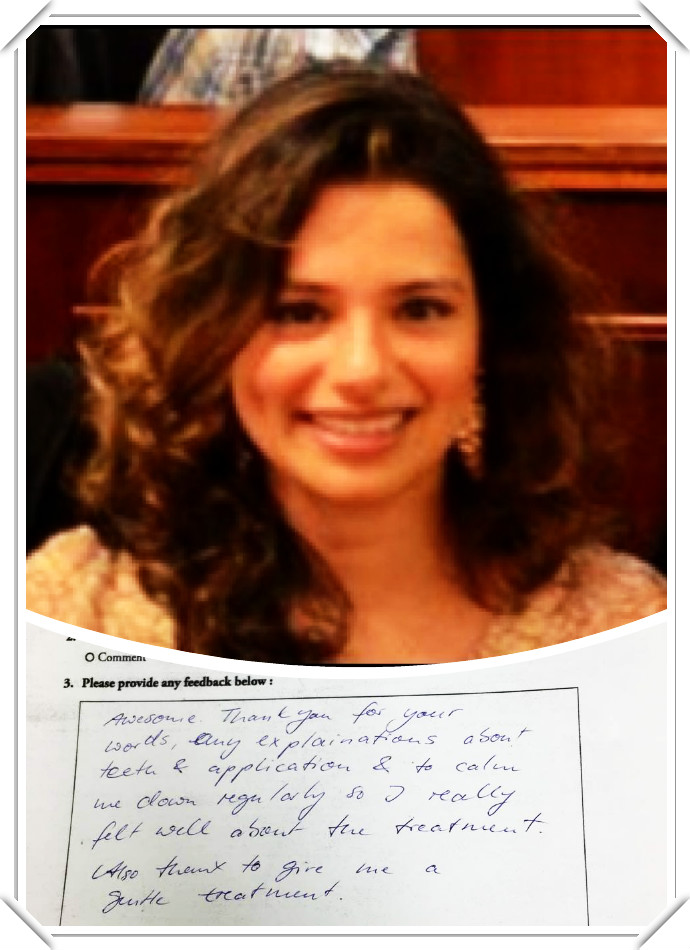 O Comment
3. Please provide any feedback below :
Awesome. Thank you for your
words, any explainations about
teeth & application & to calm
me down regularly so I really
felt well about the treatment.
Also thanx to give me a
gentle treatment.